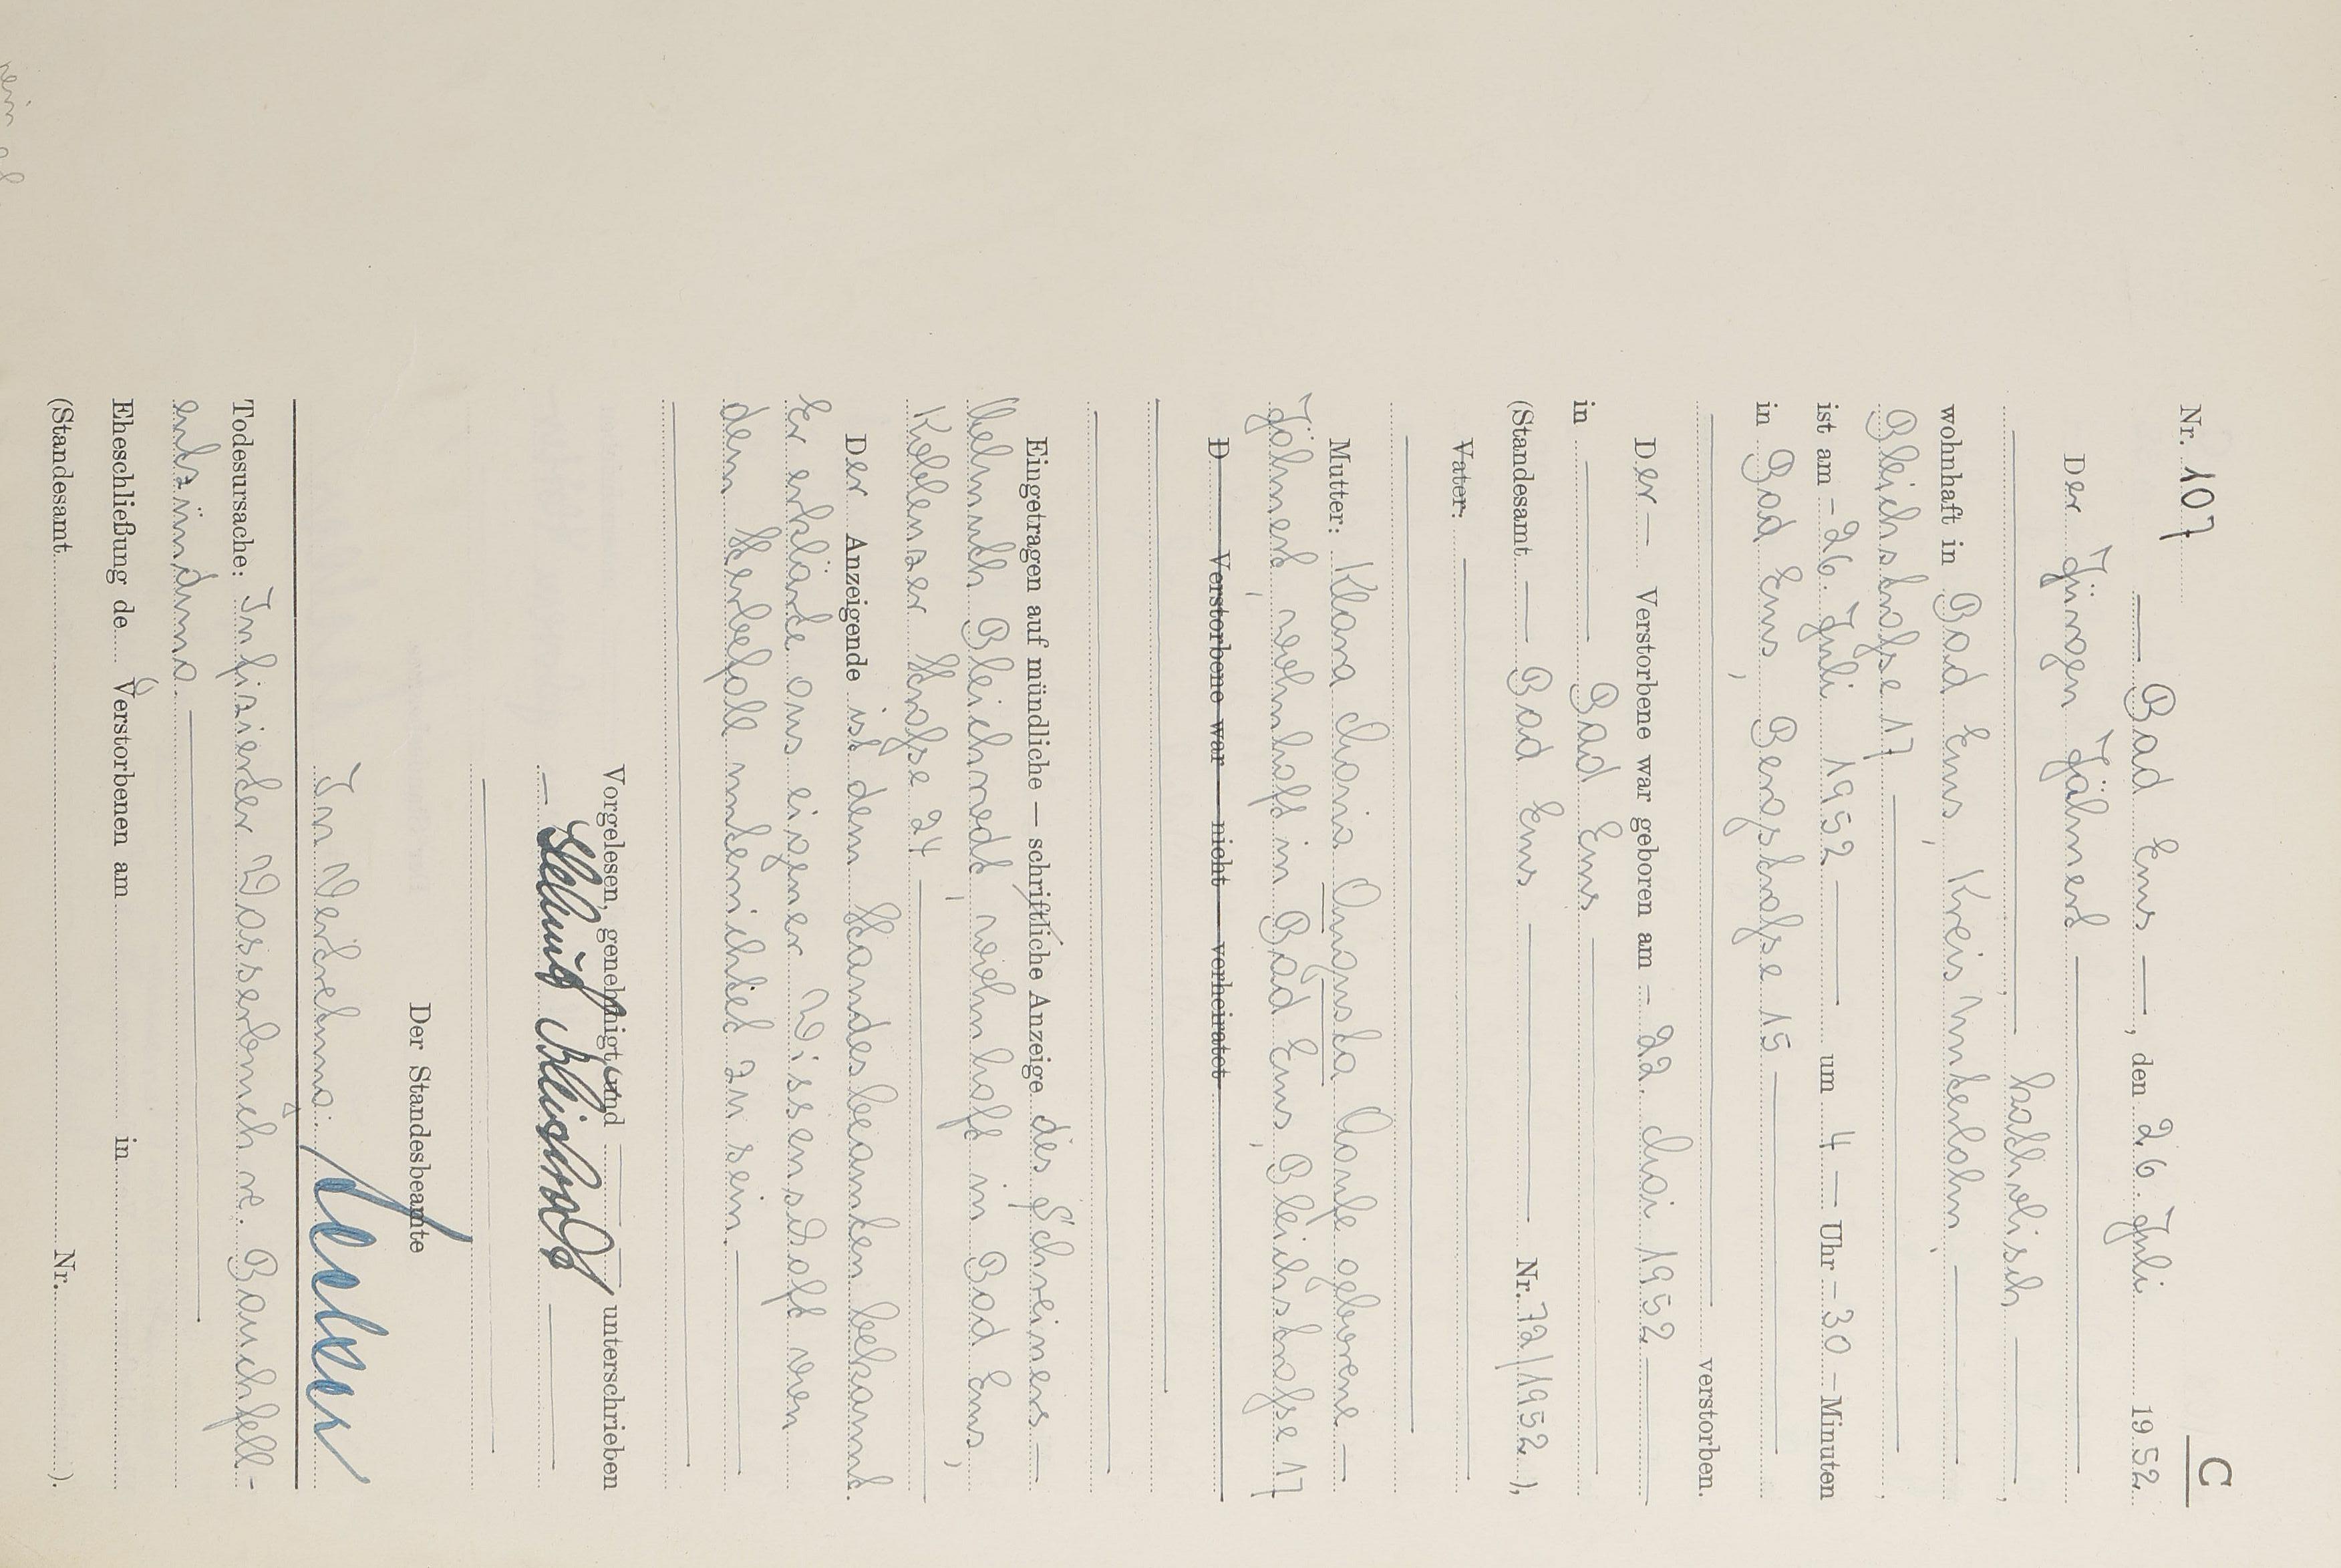 C
Nr. 107
Bad Ems, den 26. Juli 1952
Der Jürgen Jähnert
katholisch,
wohnhaft in Bad Ems, Kreis Unterlahn,
Bleichstraße 17,
ist am - 26. Juli 1952 um 4 Uhr - 30 - Minuten
in Bad Ems, Bergstraße 15
verstorben.
Der Verstorbene war geboren am - 22. Mai 1952
in Bad Ems
(Standesamt Bad Ems Nr. 72/1952),
Vater:
Mutter: Klara Maria Augusta geborene
Jähnert, wohnhaft in Bad Ems, Bleichstraße 17
D Verstorbene war — nicht — verheiratet
Eingetragen auf mündliche — schriftliche Anzeige des Schreiners
Helmuth Bleichrodt, wohnhaft in Bad Ems,
Koblenzer Straße 24
Der Anzeigende ist dem Standesbeamten bekannt.
Er erklärte aus eigener Wissenschaft von
dem Sterbefall unterrichtet zu sein.
Vorgelesen, genehmigt und unterschrieben
Helmuth Bleichrodt
Der Standesbeamte
In Vertretung:
Todesursache: Infizierter Wasserbruch u. Bauchfell-
entzündung.
Eheschließung de Verstorbenen am in
(Standesamt Nr. ).